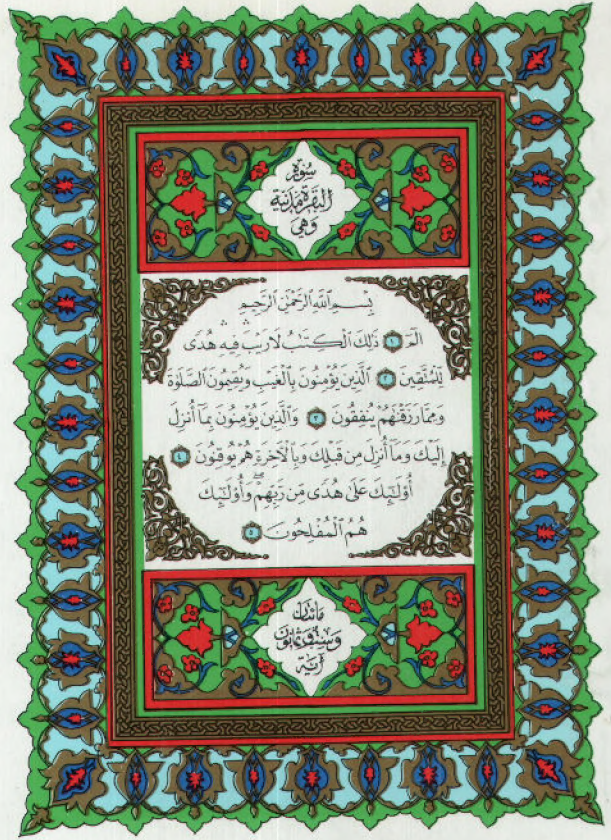 سُورَةُ
البَقَرَةِ مَدَنِيَّة
وَهِيَ
بِسْمِ ٱللَّهِ ٱلرَّحْمَٰنِ ٱلرَّحِيمِ
الٓمٓ ١ ذَٰلِكَ ٱلْكِتَٰبُ لَا رَيْبَ ۛ فِيهِ ۛ هُدًى
لِّلْمُتَّقِينَ ٢ ٱلَّذِينَ يُؤْمِنُونَ بِٱلْغَيْبِ وَيُقِيمُونَ ٱلصَّلَوٰةَ
وَمِمَّا رَزَقْنَٰهُمْ يُنفِقُونَ ٣ وَٱلَّذِينَ يُؤْمِنُونَ بِمَآ أُنزِلَ
إِلَيْكَ وَمَآ أُنزِلَ مِن قَبْلِكَ وَبِٱلْءَاخِرَةِ هُمْ يُوقِنُونَ ٤
أُو۟لَٰٓئِكَ عَلَىٰ هُدًى مِّن رَّبِّهِمْ ۖ وَأُو۟لَٰٓئِكَ
هُمُ ٱلْمُفْلِحُونَ ٥
مَائتَانِ
وَسِتٌّ وَثَمَانُونَ
آيَة